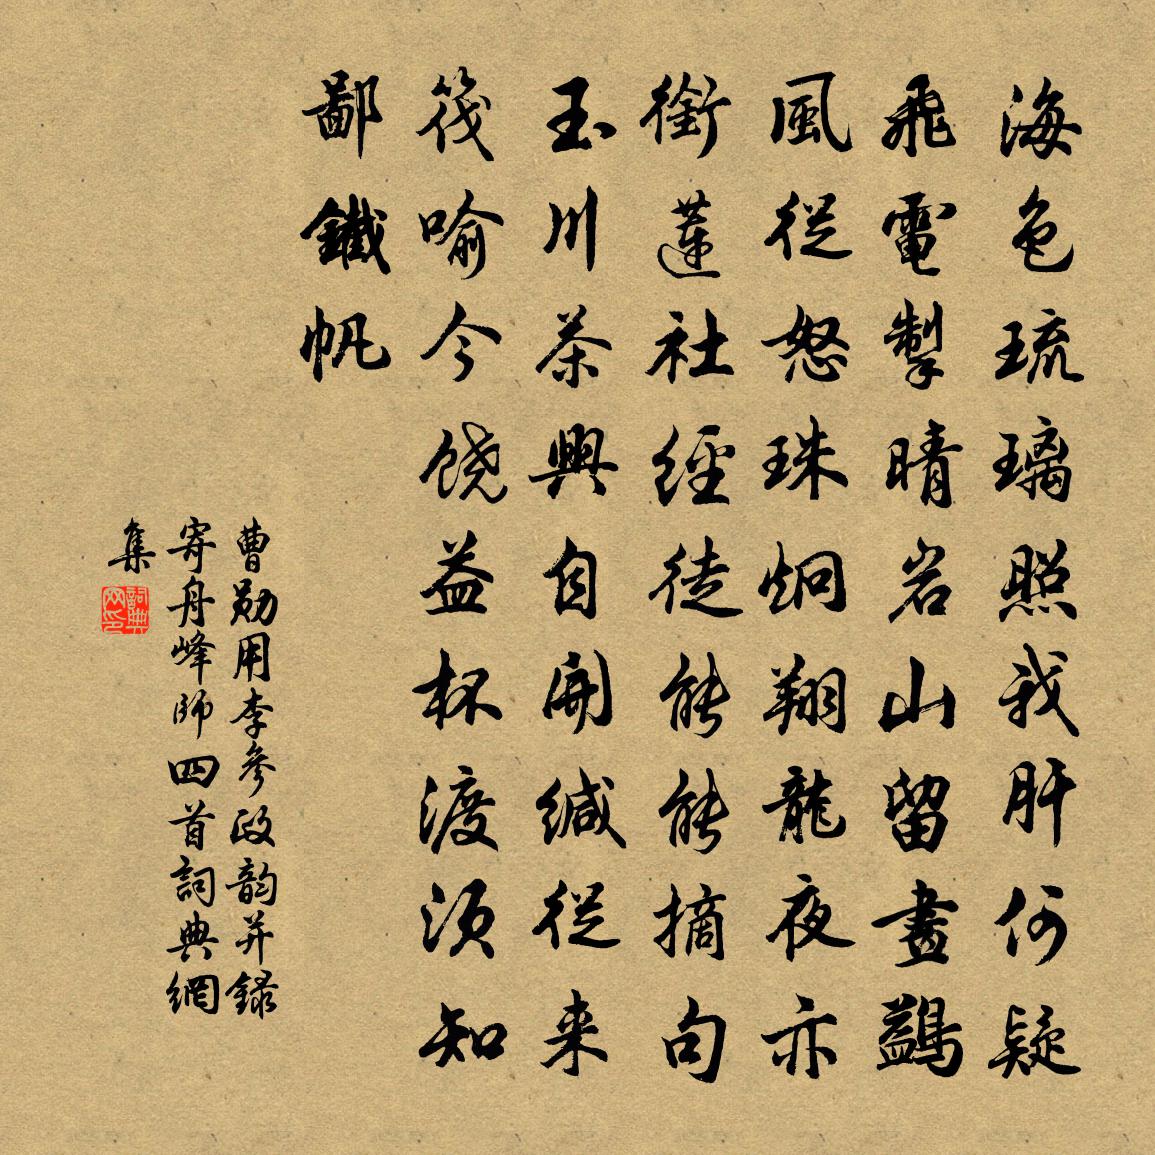 海色琉璃照我肝何疑
飛電掣晴岩山留畫鷁
風從怒珠炯翔龍夜亦
銜蓮社經徒能能摘句
玉川茶興自開緘從来
筏喻今饶益杯渡須知
鄙鐵帆
曹勛用李參政韵并録
寄舟峰師四首詞典網
集
詞典網印